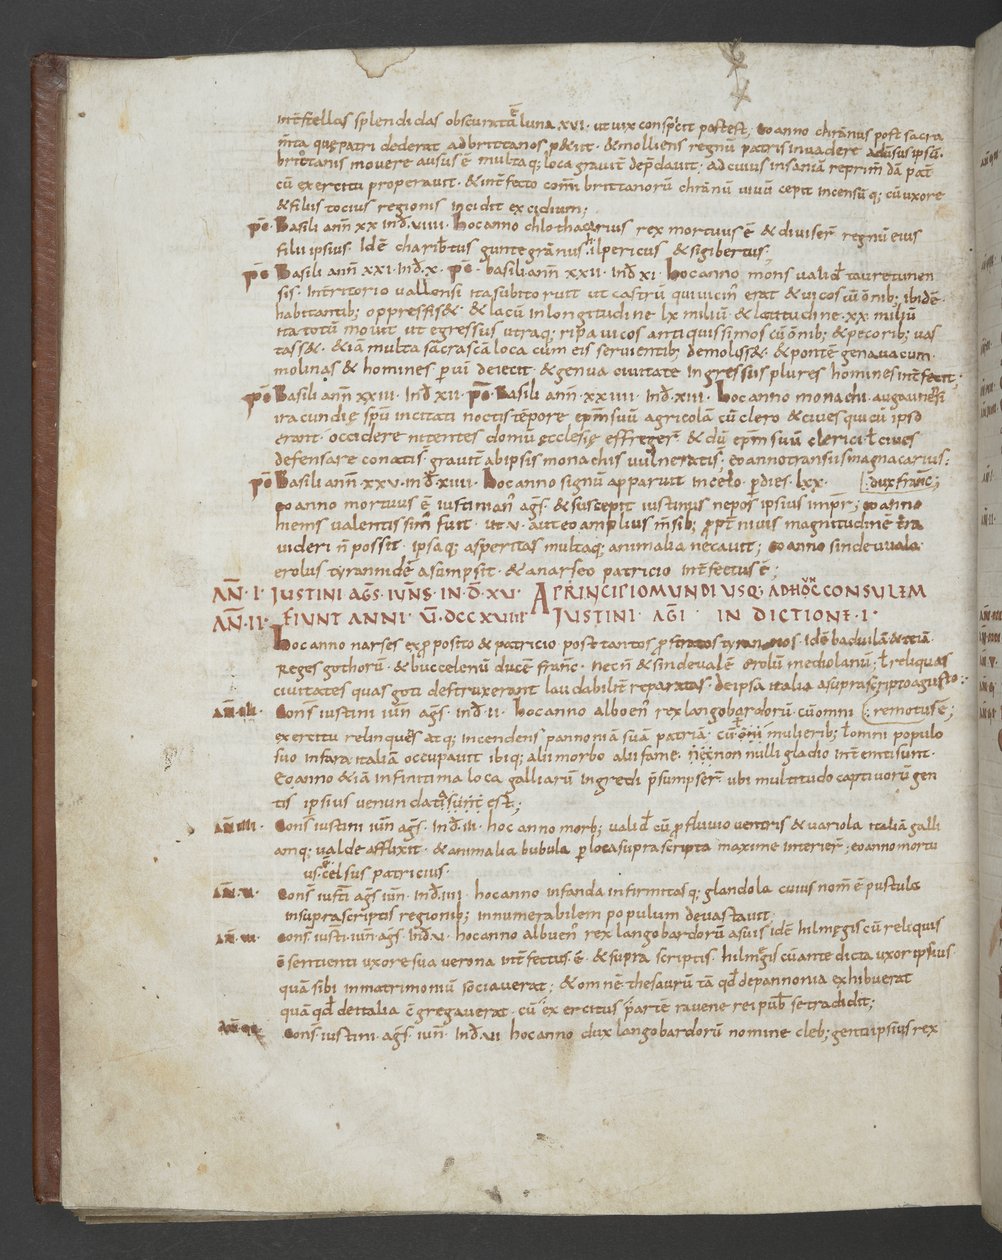 int̄ stellas splendidas obscurata ē luna xvi· ut vix conspici potest, eo anno chrānus post sacra
m̄ta quę patri dederat ad brittanos p&iit· & molliens regnū patris invadere adūsus ipsū·
brittanis movere ausus ē multaq; loca gravit̄ dep̄davit· ad cuius insaniā reprim̄dā pat̄
cū exercitu properavit· & int̄fecto com̄ brittanorū chrānū vivū cepit incensūq; cū uxore
& filiis totius regionis incidit excidium;
p̄c̄ Basili ann̄ xx ind̄ viiii· hoc anno chlothacarius rex mortuus ē & diviser̄ regnū eius
filii ipsius Idē charib̄tus guntegrānus ilpericus & sigibertus;
p̄c̄ Basili ann̄ xxi· ind̄ x· p̄c̄· basili ann̄ xxii· ind̄ xi· hoc anno mons valid̄ tauretunen
sis· Int̄ritorio vallensi ita subito ruit ut castrū qui vicin̄ erat & vicos cū ōnib; ibidē·
habitantib; oppressiss&· & lacū in longitudine lx miliū & latitudine· xx· miliū
ita totū movit ut egressus utraq; ripa vicos antiquissimos cū ōnib; & pecorib; vas
tass&· & iā multa sacrascā loca cum eis servientib; demoliss&· & pontē genavacum·
molinas & homines p̄ vim̄ deiecit· & genua civitate ingressus plures homines int̄fecit;
p̄c̄ Basili ann̄ xxiii· ind̄ xii· p̄c̄· Basili ann̄ xxiiii· ind̄ xiii· hoc anno monachi· augaunesi
iracundię sp̄u incitati noctis tēpore ep̄m suū agricolā cū clero & cives qui cū ipso
erant· occidere nitentes domū ecclesię effreger̄ & dū ep̄m suū clerici l̄ cives
defensare conatis gravit̄ ab ipsis monachis vulneratis; eo anno transiit magnacarius:
p̄c̄ Basili ann̄ xxv· ind̄ xiiii· hoc anno signū apparuit in celo· p̄ dies· lxx· :dux franc̄;
eo anno mortuus ē iustinian̄ ag̅s· & suscepit iustinus nepos ipsius imp̄r; eo anno
hiems valentissim̄ fuit· ut v· aut eo amplius m̄sib; p̄p̄t nivis magnitudinē t̄ra
videri n̄ possit· ipsaq; asperitas multaq; animalia necavit; eo anno sindevvala
erolus tyrannidē asumpsit· & a narseo patricio int̄fectus ē;
AN̄· I· IUSTINI AG̅S· IUN̄S· IN·D̄· XV· A PRINCIPIO MUNDI USQ; AD HŌC VN̄ CONSULEM
AN̄· II· FIUNT ANNI· V̄· DCCXVIII· IUSTINI· AG̅I IN DICTION̄E· I·
hoc anno narses ex p̄posito & patricio post tantos p̄stratos tyrannos· idē baduilā & teiā
Reges gothorū· & buccelenū ducē franc̄· necn̄ & sindevalē erolū mediolanū· l̄ reliquas
civitates quas goti destruxerant laudabilit̄ reparatas· de ipsa italia a supra scripto agusto:
AN̄· III· Cons̄ iustini iun̄ ag̅s· ind̄· ii· hoc anno alboen̄ rex langobardorū· cū omni :remotus ē;
exercitu relinquēs atq; incendens pannoniā suā patriā· cū ōni mulierib; l̄ omni populo
suo in fara italiā occupavit ibiq; alii morbo alii fame· necnon nulli gladio int̄empti sunt·
Eo anno & iā in finitima loca galliarū ingredi p̄sumpser̄· ubi multitudo captivorū gen
tis ipsius venundati sunt est;
AN̄· IIII· Cons̄ iustini iun̄ ag̅s· ind̄· iii· hoc anno morb; valid̄ cū p̄fluvio ventris & variola italiā galli
amq; valde afflixit· & animalia bubula p̄ loca supra scripta maxime interier̄; eo anno mortu
us ē celsus patricius·
AN̄· V· Cons̄ iusti ag̅s iun̄· ind̄ iiii· hoc anno infanda infirmitasq; glandola cuius nom̄ ē pustula
in suprascriptis regionib; innumerabilem populum devastavit·
AN̄· VI· Cons̄ iusti· iun̄· ag̅s· ind̄· v· hoc anno albuen̄ rex langobardorū a suis idē hilmęgis cū reliquis
c̄sentienti uxore sua verona int̄fectus ē· & supra scriptis hilmęgis cū antedicta uxor ipsius
quā sibi in matrimoniū sociaverat; & omnē thesaurū tā qd̄ de pannonia exhibuerat
quā qd̄ de italia c̄gregaverat· cū exercitus partē ravene rei pub̄l se tradidit;
Cons̄· iustini· ag̅s· iun̄· ind̄· vi· hoc anno dux langobardorū nomine cleb; genti ipsius rex